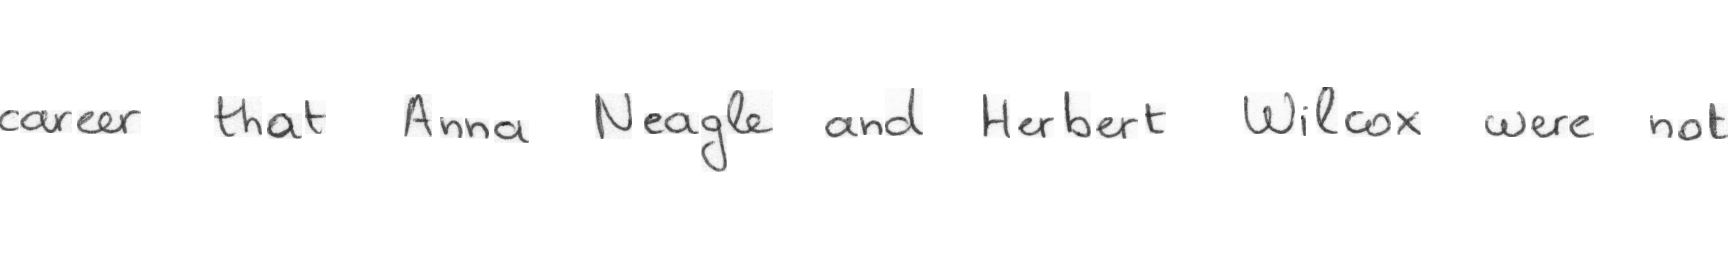 career that Anna Neagle and Herbert Wilcox were not